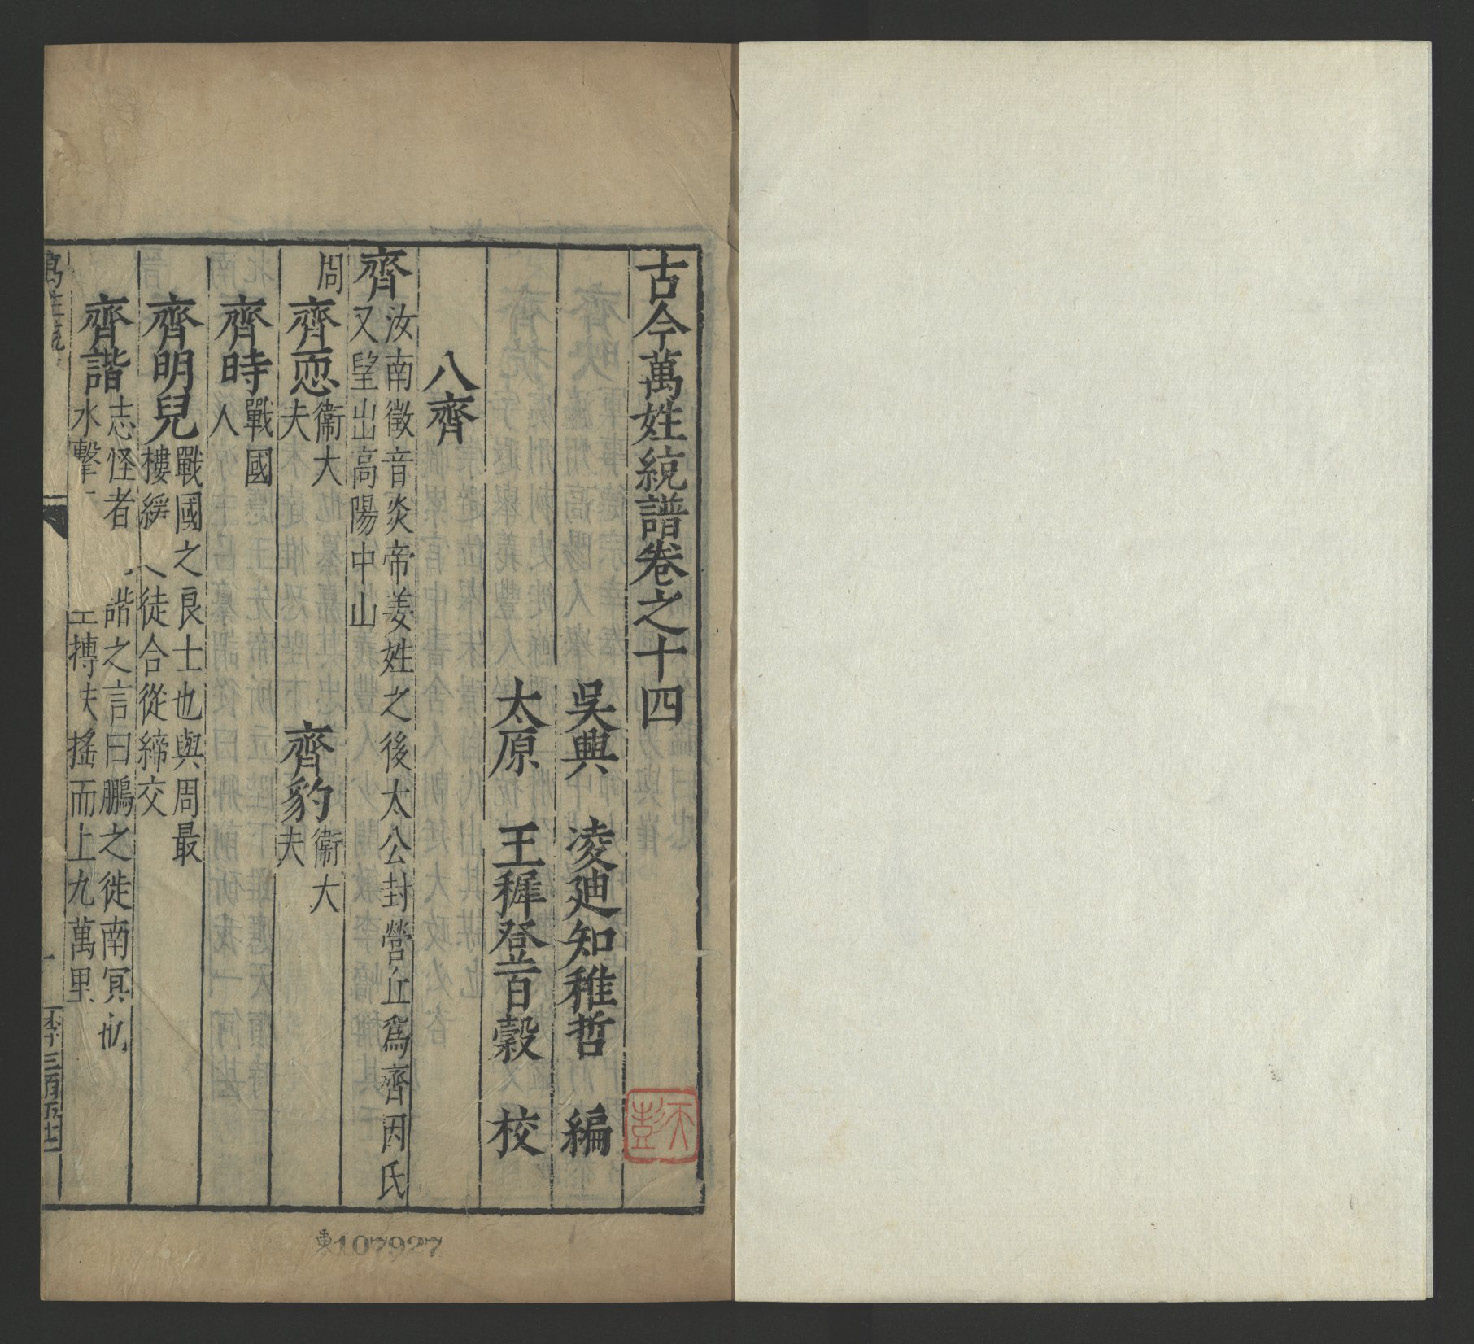 古今萬姓統譜卷之十四
吳興 凌迪知稚哲 編
太原 王穉登百穀 校
八齊
齊 汝南徵音炎帝姜姓之後太公封營丘爲齊因氏
又望出高陽中山
周
齊惡 衞大
夫
齊豹 衞大
夫
齊時 戰國
人
齊明兒 戰國之良士也與周最
樓緩 徒合從締交
齊諧 志怪者 諧之言曰鵬之徙南冥也
水擊 搏扶搖而上九萬里
東107927